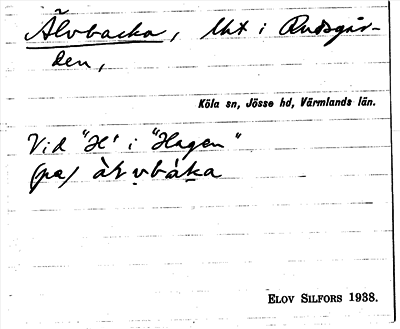 Älvbacka, Uht i Rudsgår-
den,
Köla sn, Jösse hd, Värmlands län.
Vid "H" i "Hagen"
(pa)
ELOV SILFORS 1938.